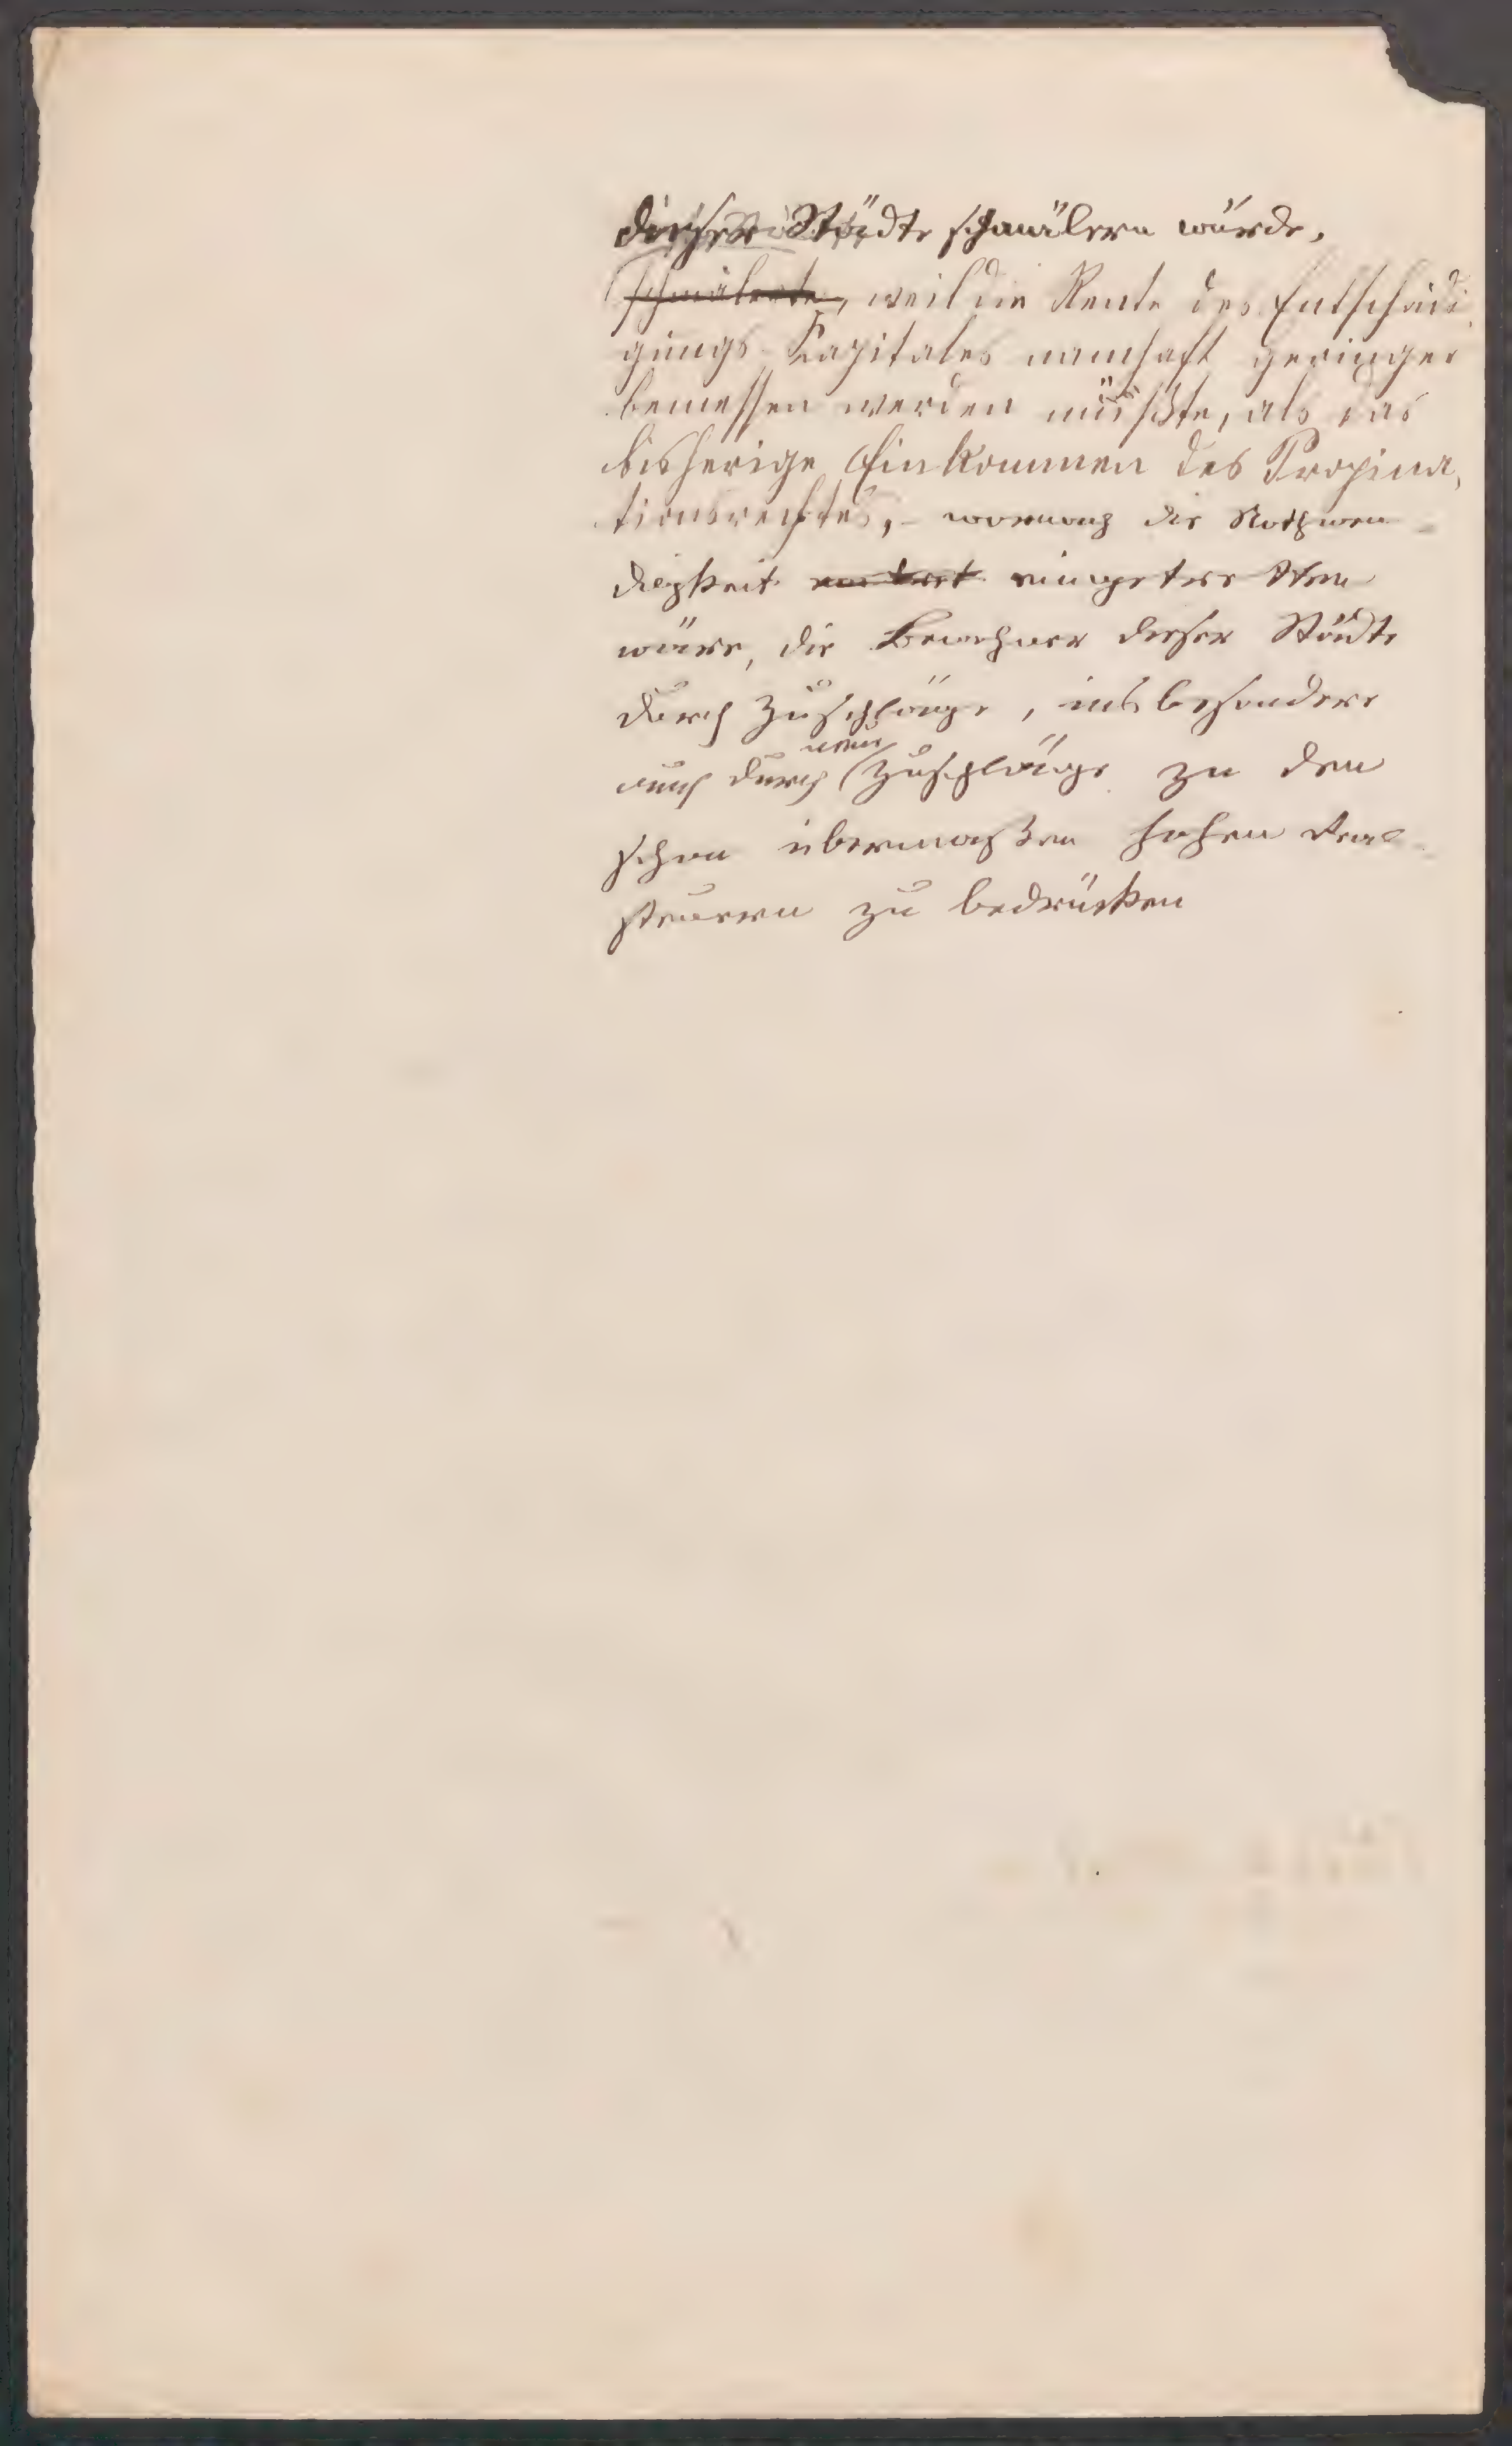 dieser Städte schmälern würde,
schmälerte, weil die Rente des Entschädi
gungs-Kapitales namhaft geringer
bemessen werden müßte, als das
bisherige Einkommen des Propina
tionsrechtes, - wornach die Nothwen-
digkeit eingetreten
wäre, die Bewohner dieser Städte
durch Zuschläge, insbesondere
neue
auch durch Zuschläge zu den
schon übermaßen hohen Real-
steuern zu bedrücken